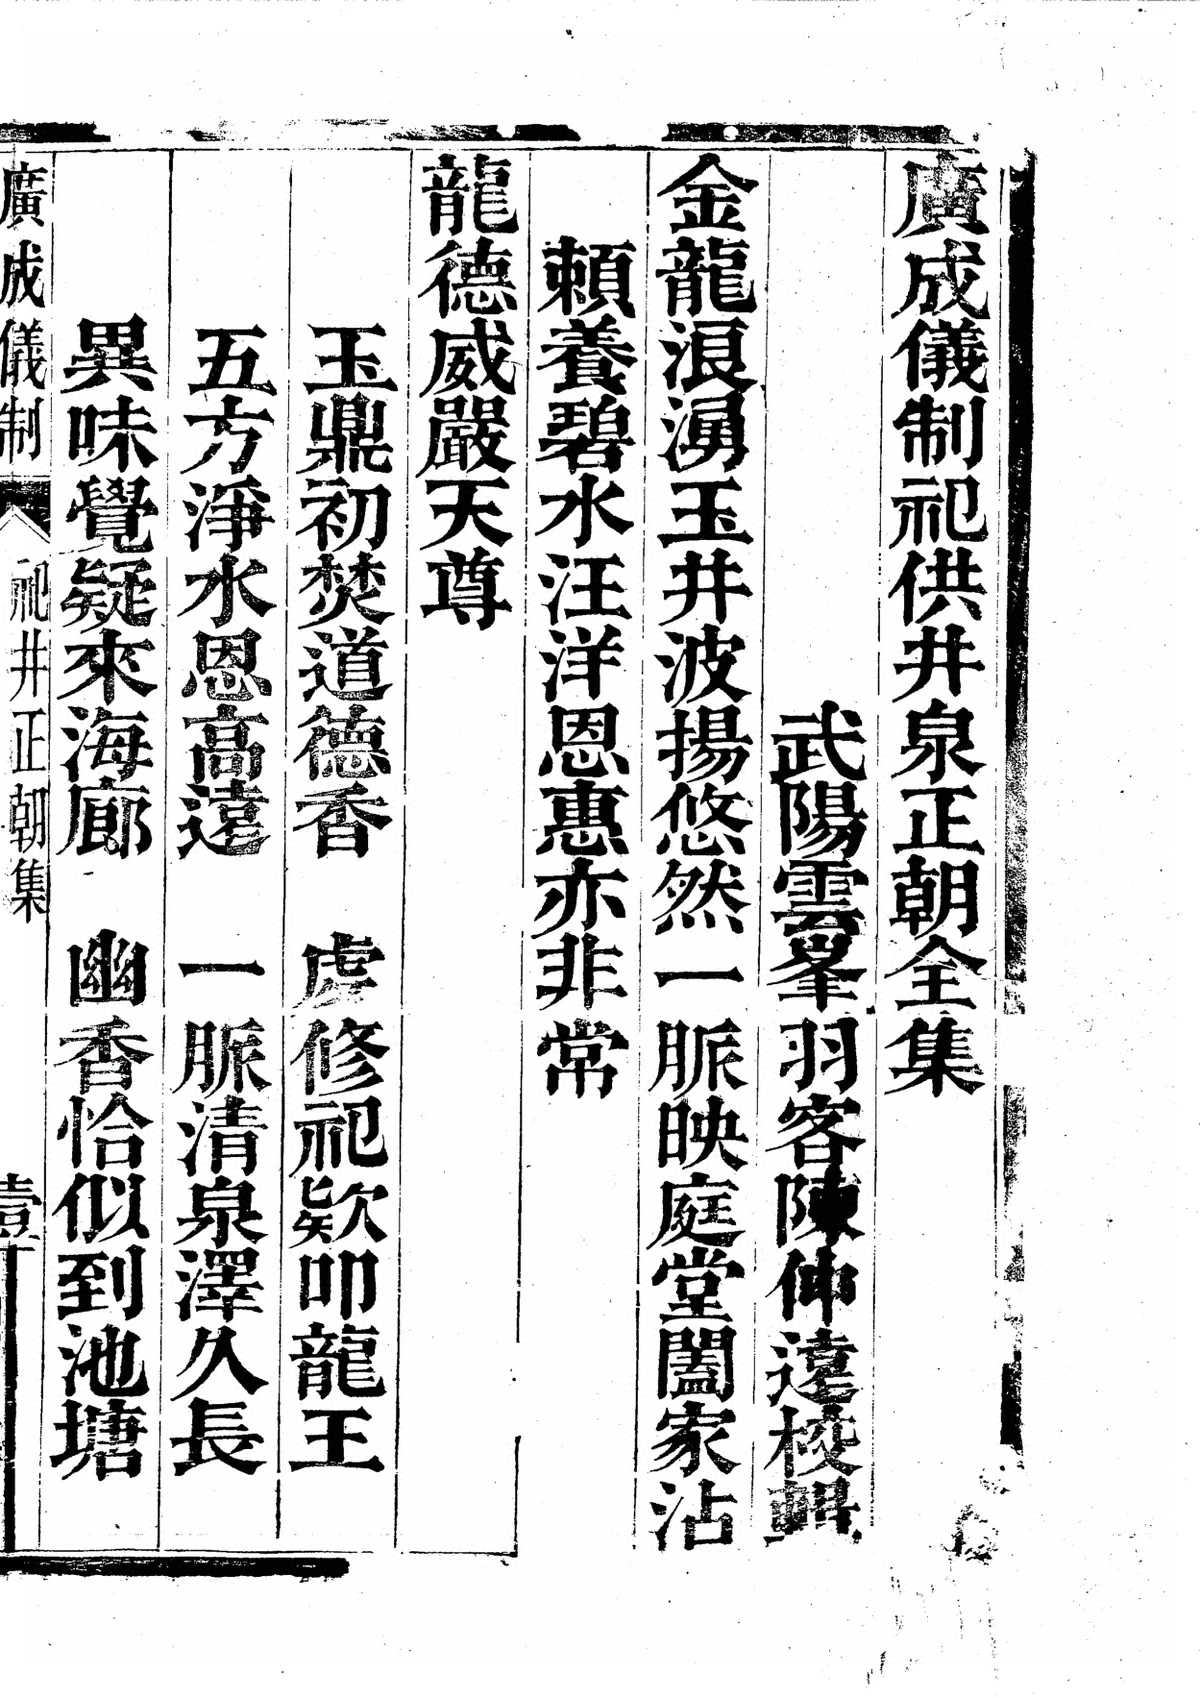 廣成儀制祀供井泉正朝全集
武陽雲峯羽客陳仲遠校輯
金龍浪湧玉井波揚悠然一脈映庭堂闔家沾
賴養碧水汪洋恩惠亦非常
龍德威嚴天尊
玉鼎初焚道德香　虔修祀欵叩龍王
五方淨水恩高遠　一脈清泉澤久長
異味覺疑來海廊　幽香恰似到池塘
廣成儀制　祀井正朝集　壹